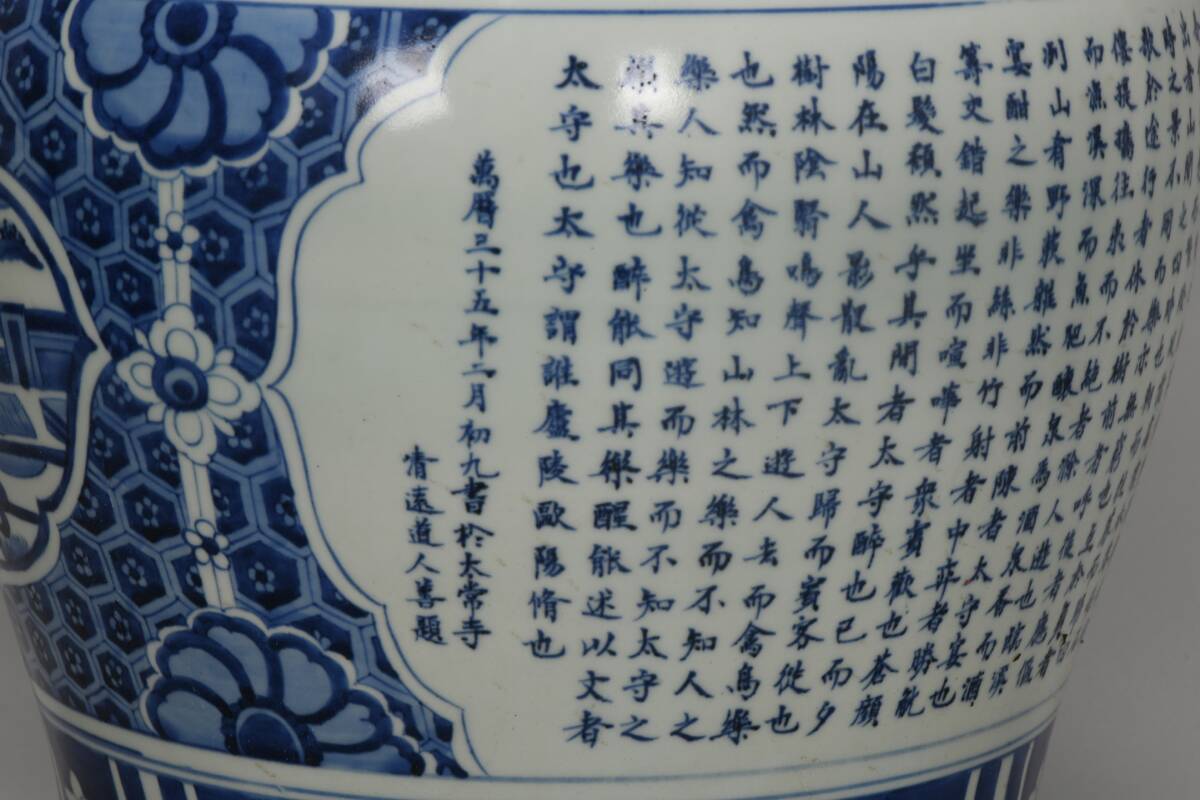 時之景不同而樂亦無窮也
歌於途行者休於樹前者呼後者應傴
僂提攜往來而不絕者滁人遊也臨溪
而漁溪深而魚肥釀泉為酒泉香而酒
洌山有野蔌雜然而前陳者太守宴也
宴酣之樂非絲非竹射者中弈者勝觥
籌交錯起坐而喧嘩者衆賓歡也蒼顏
白髮頹然乎其間者太守醉也已而夕
陽在山人影散亂太守歸而賓客從也
樹林陰翳鳴聲上下遊人去而禽鳥樂
也然而禽鳥知山林之樂而不知人之
樂人知從太守遊而樂而不知太守之
樂其樂也醉能同其樂醒能述以文者
太守也太守謂誰廬陵歐陽脩也
萬曆三十五年二月初九書於太常寺
清遠道人善題